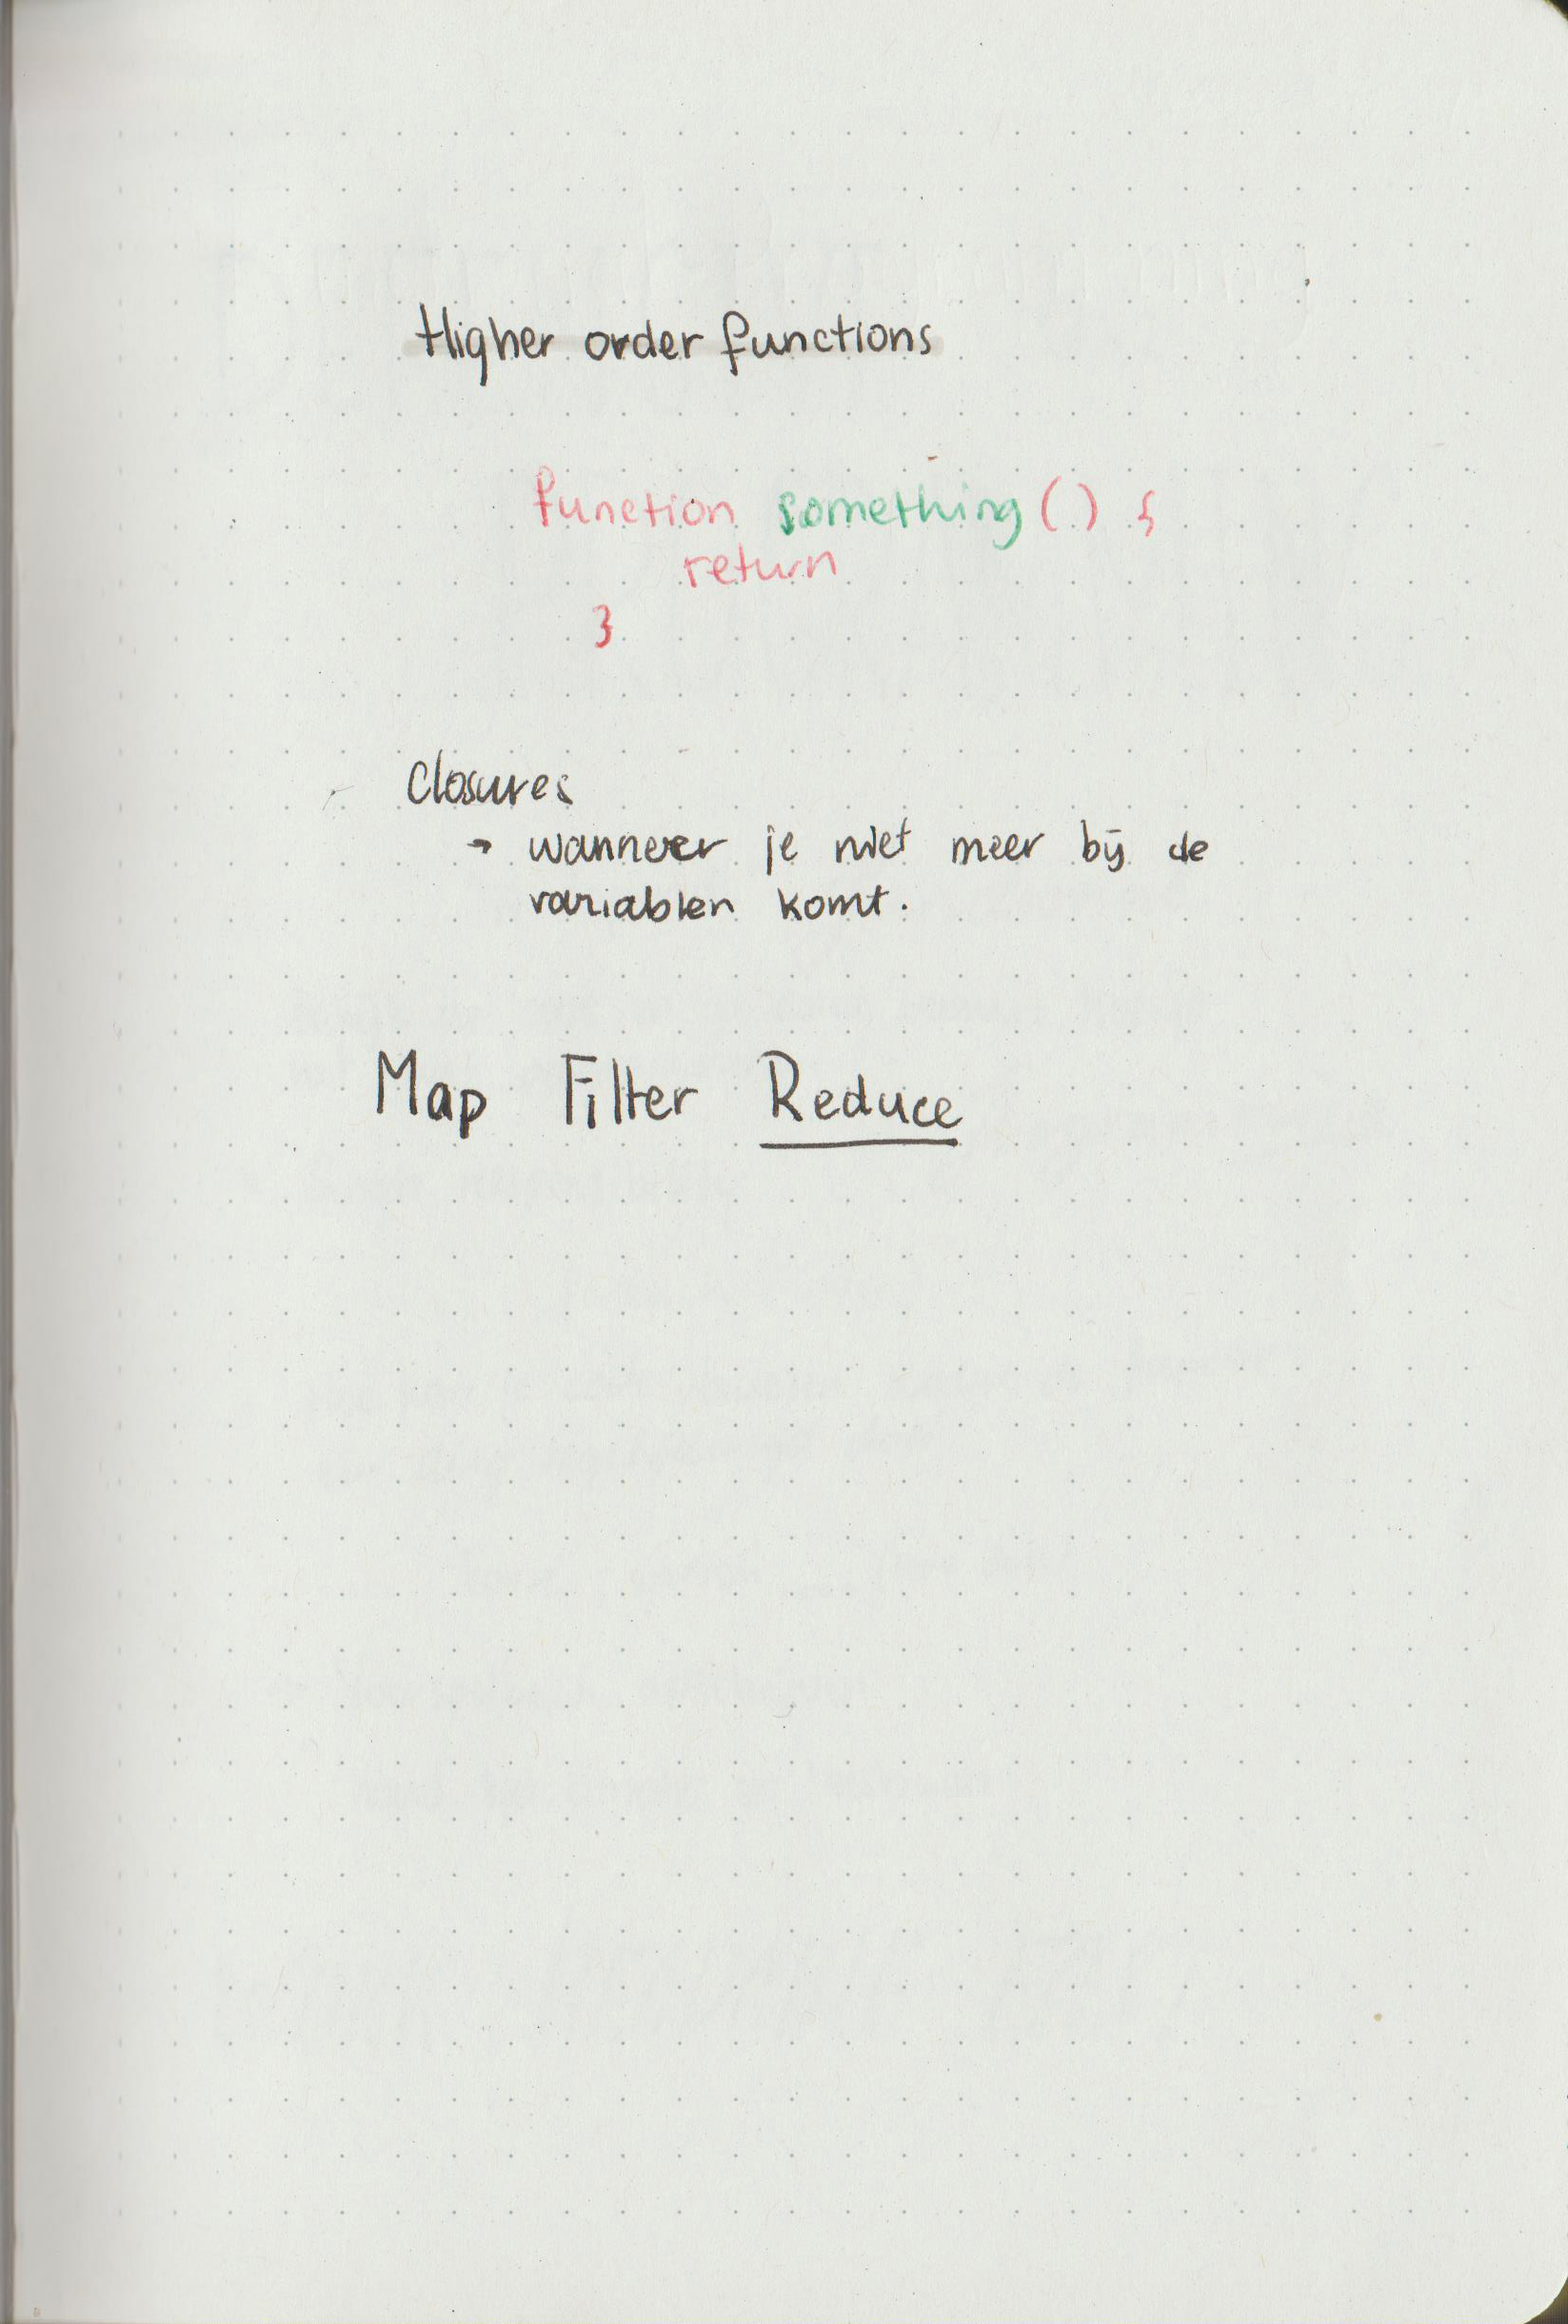 Higher order functions
function something() {
return
}
Closures
→ wanneer je niet meer bij de
variablen komt.
Map Filter Reduce